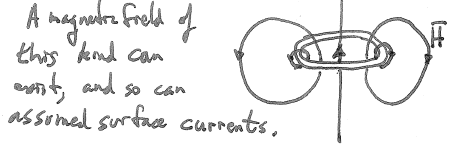 A magnetic field of
this kind can
exist, and so can
assumed surface currents.
H̅